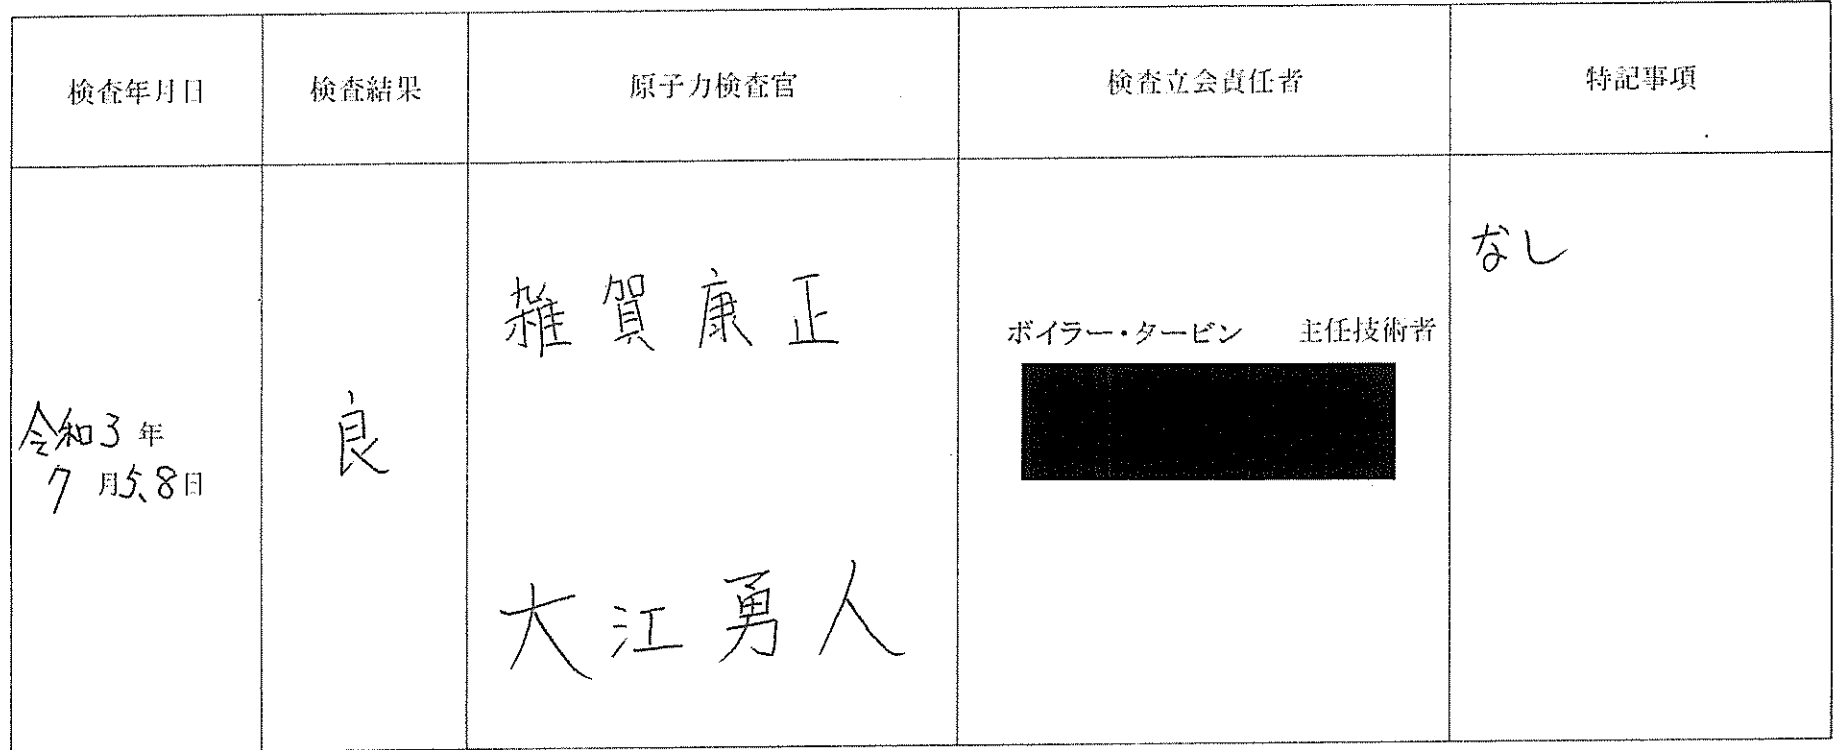 検査年月日
検査結果
原子力検査官
検査立会責任者
特記事項
令和3年
7月5、8日
良
雑賀康正
大江勇人
ボイラー・タービン 主任技術者
なし